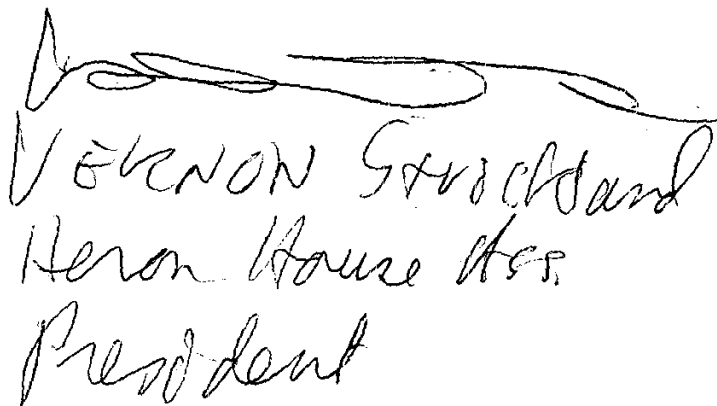 VERNON Strickland
Heron House Ass.
President